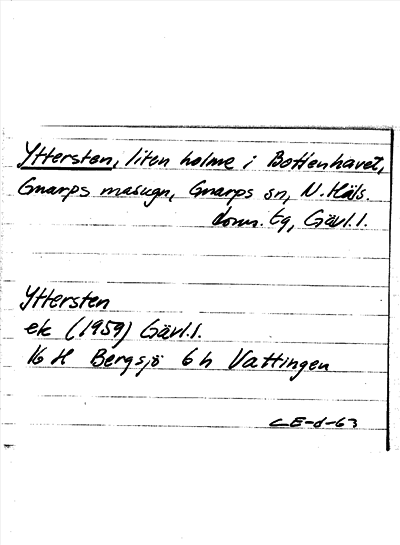 Yttersten, liten holme i Bottenhavet,
Gnarps masugn, Gnarps sn, N. Häls.
doms. tg, Gävl.l.
Yttersten
ek (1959) Gävl.l.
16 H Bergsjö 6 h Vattingen
CE-d-63